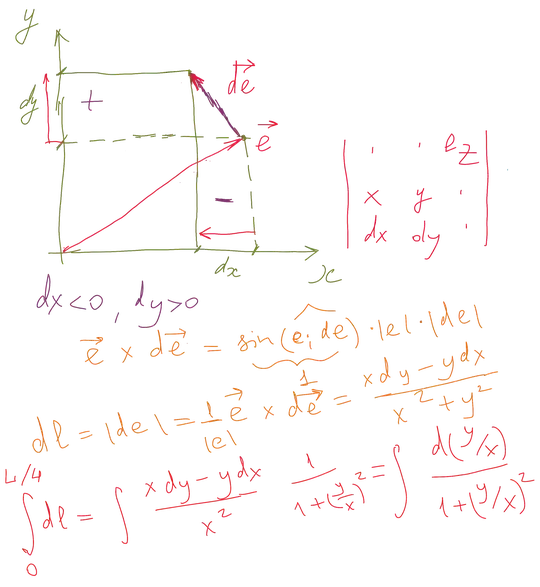 y
dy
+
de⃗
e⃗
−
dx
x
| · · e_z |
| x y · |
| dx dy · |
dx<0, dy>0
e⃗ × de⃗ = sin(e; de) · |e| · |de|
1
dl = |de| = 1/|e| e⃗ × de⃗ = (x dy − y dx)/(x² + y²)
∫₀^{L/4} dl = ∫ (x dy − y dx)/x² 1/(1+(y/x)²) = ∫ d(y/x)/(1+(y/x)²)